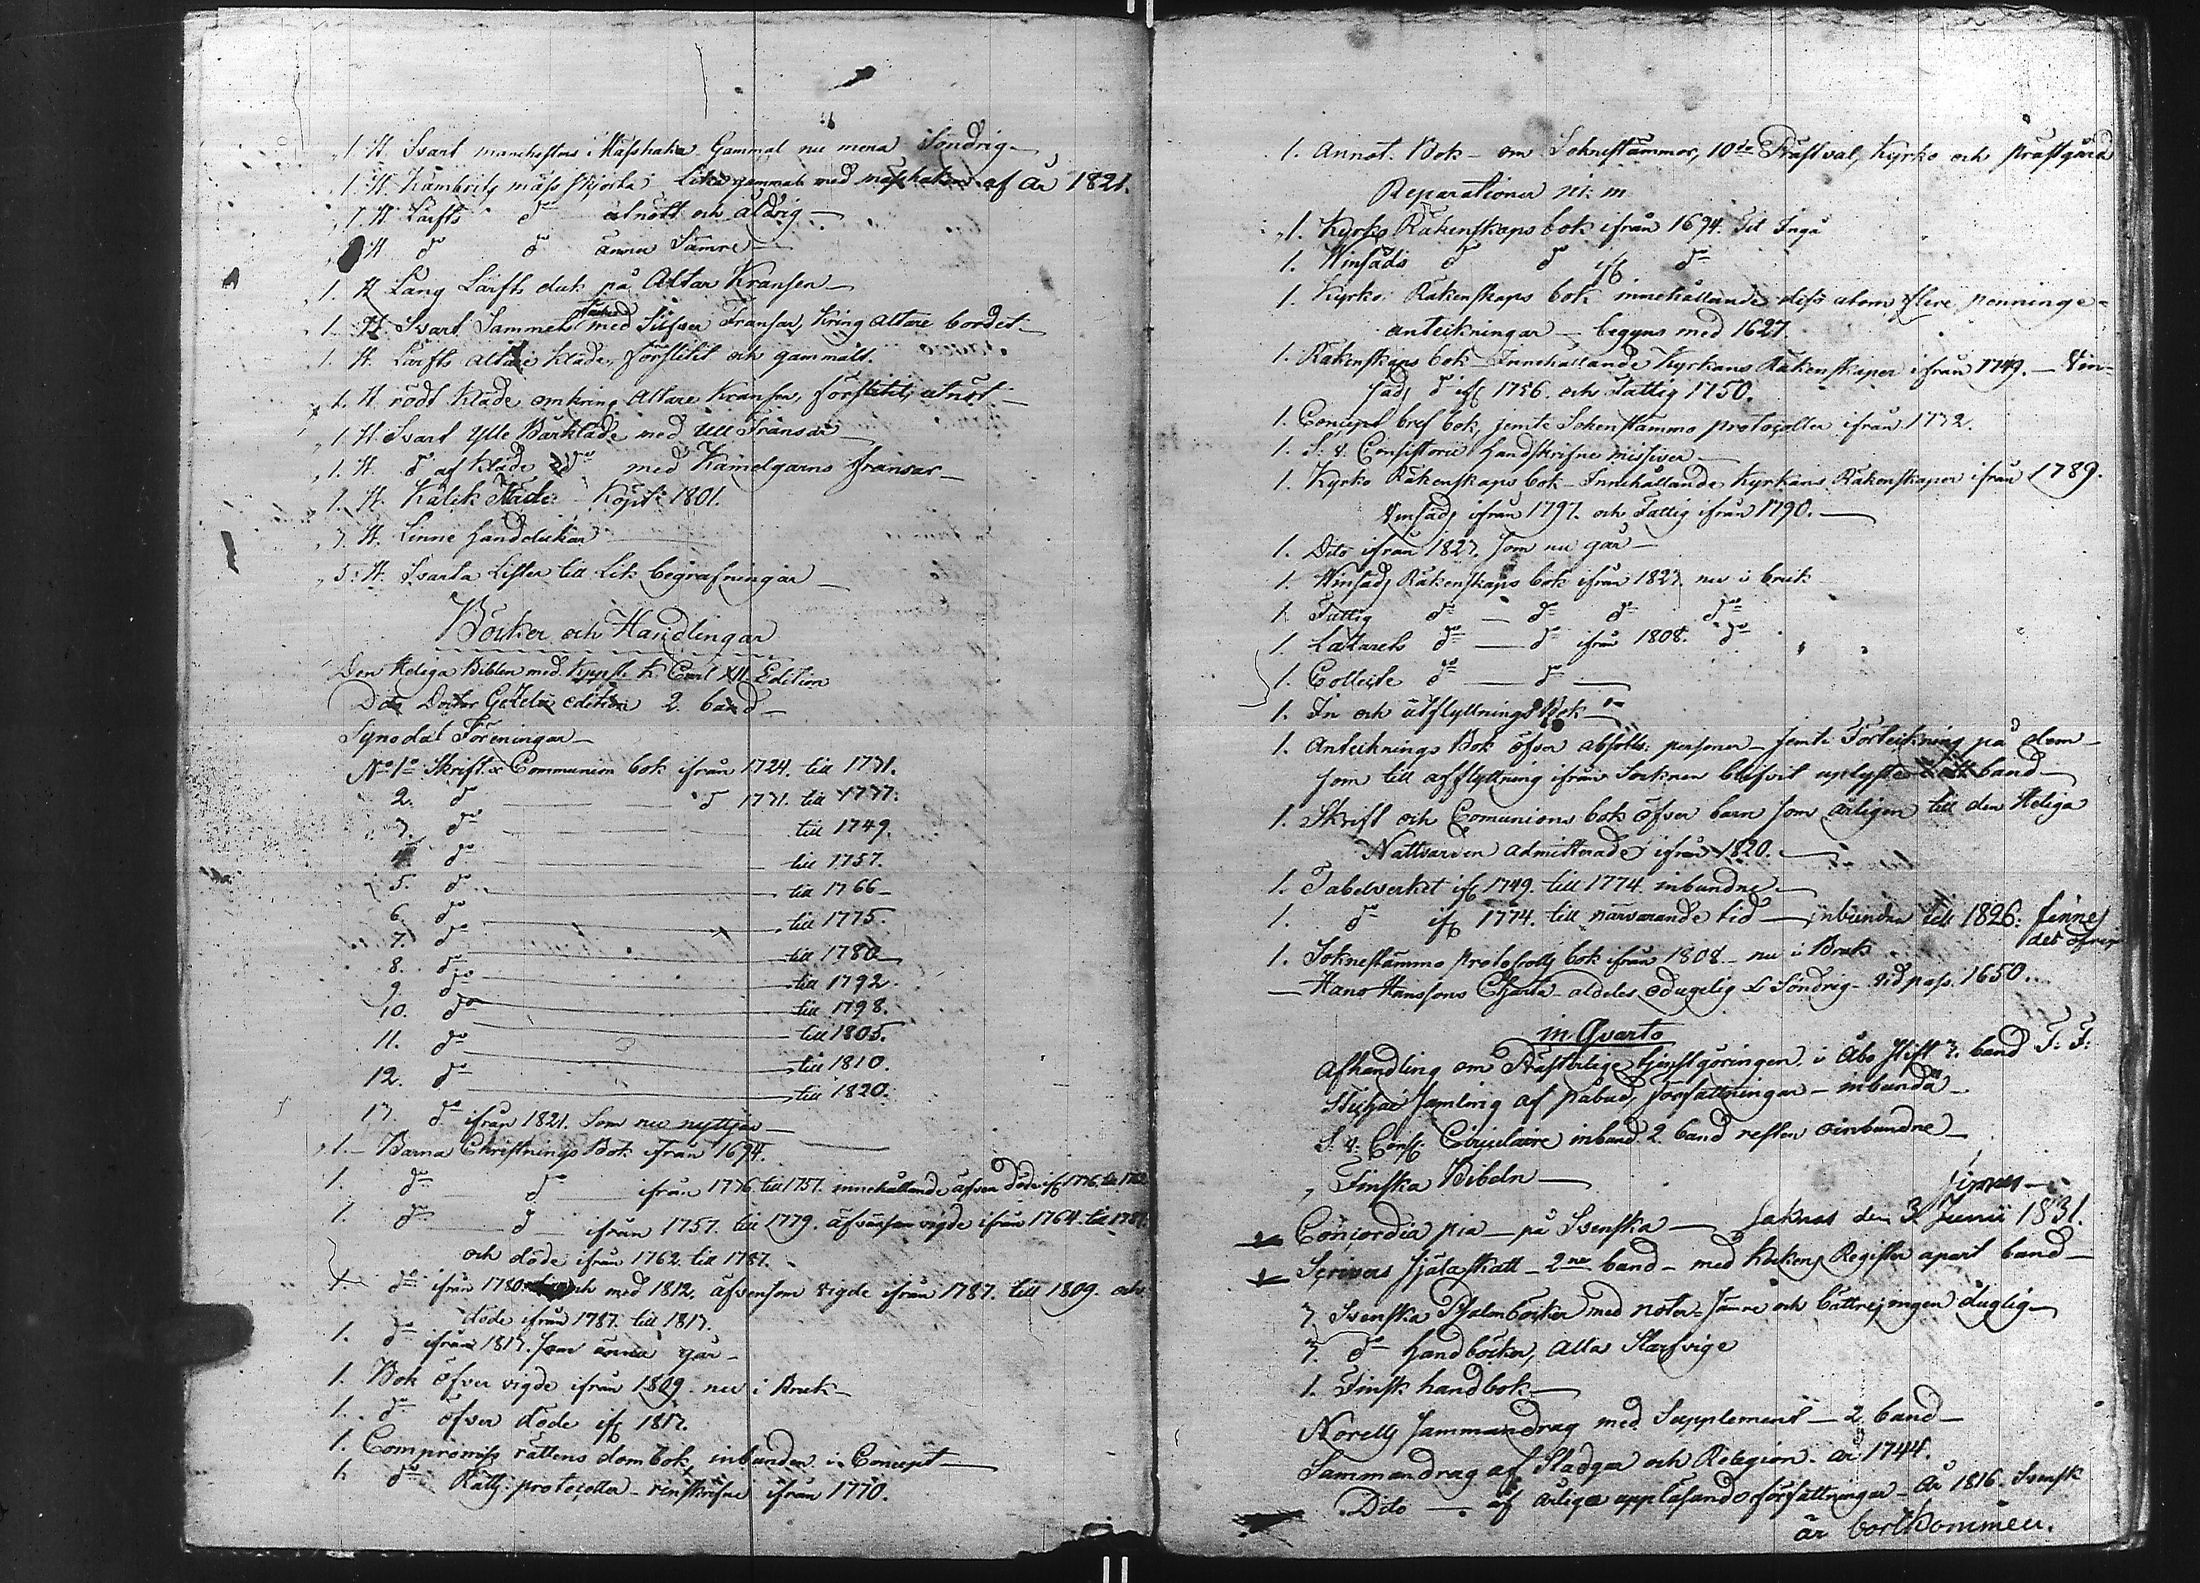 1. H. Svart manchesters Mässhake Gammal nu mera Söndrig
1. H. Kambriks mäss skjorta Lika gammal med mässhaken af år 1821.
1. H. Lärfts do utnött och åldrig
H do do ännu Sämre
1. H Lång Lärfts duk på Altar Kransen
1. H. Svart Sammets med Silfver Fransar, kring Altare bordet
1. H. Lärfts altare kläde, förslitit och gammalt.
1. H. rödt Kläde omkring Altare Kransen, förslitit, utnöt
1. H. Svart Ylle Bårkläde med Ull Fransar
1. H. do af kläde do med Kamelgarns fransar
1. H. Kalk Kläde Köpt 1801.
3. H. Linne handdukar
3. H. Svarta Lister till Lik begrafningar
Böcker och Handlingar
Den Heliga Biblen med Kopst. K. Carl XII Edition
Dito Doctor Gezelii edition 2. band
Synodal Föreningar
No 1o Skrift. & Communion bok ifrån 1724. till 1731.
2. do do 1731. till 1737.
3. do till 1749.
4. do till 1757.
5. do till 1766
6. do till 1775.
7. do till 1780
8. do till 1792.
9. do till 1798.
10. do till 1805.
11. do till 1810.
12. do till 1820.
13. do ifrån 1821. Som nu nyttjas
1. Barna Christnings Bok ifrån 1694.
1. do do ifrån 1736. till 1757. innehållande äfven döde ifr 1736. till 1762
1. do do ifrån 1757. till 1779. äfvensom vigde ifrån 1764. till 1787.
och döde ifrån 1762. till 1787.
1. do ifrån 1780. och med 1812, äfvensom vigde ifrån 1787. till 1809. och
döde ifrån 1787. till 1813.
1. do ifrån 1813. som ännu går
1. Bok öfver vigde ifrån 1809. nu i Bruk
1. do öfver döde ifr 1813.
1. Compromiss rättens dombok, inbunden in Concept
1. do Rätts protocoller renskrifne ifrån 1770.
1. Annot. Bok om Sokneståmmor, 10de Prästval, Kyrko och prästgårds
Reparationer m. m
1. Kyrko Räkenskaps bok ifrån 1694. Til Ingå
1. Winsäds do do ifr do
1. Kyrko Räkenskaps bok innehållande dess utom flere penninge
anteikningar begyns med 1627.
1. Räkenskaps bok Innehållande Kyrkans Räkenskaper ifrån 1749. Vin-
säds do ifr 1756. och Fattig 1750.
1. Concept bref bok, jemte Sokenstämmo protocoller ifrån 1732.
1. S: V. Consistorii handskrifne missiver
1. Kyrko Räkenskaps bok Innehållande Kyrkans Räkenskaper ifrån 1789.
Vinsäds ifrån 1797. och Fattig ifrån 1790.
1. Dito ifrån 1827. som nu går
1. Winsäds Räkenskaps bok ifrån 1827. nu i bruk
1. Fattig do do do do
1. Lazarets do do ifrån 1808. do
1. Collecte do do
1. In och utflyttnings Bok
1. Antecknings Bok öfver absolv: personer jemte Förteikning på dem
som till afflyttning ifrån Socknen blifvit uplyste band
1. Skrift och Comunions bok öfver barn som årligen till den Heliga
Nattvarden admitterade ifrån 1820.
1. Tabelverket ifr 1749. till 1774. inbundne
1. do ifr 1774. till närvarande tid inbundna till 1826. finnes
det öfver
1. Soknestämmo protocolls bok ifrån 1808 nu i Bruk
Hans Hanssons Charta aldeles odugelig & Söndrig vid pass. 1650.
in Qvarto
Afhandling om Prästerlige tjenstgöringen i Åbo Stift 3. band
samling af påbud, författningar inbunda
S. V. Cons. Circulaire inbund. 2 band resten oinbundne
Finska Bibeln
finnes
Concordia pia på Svenska saknas den 3 Junii 1831.
Scrivers Själaskatt 2ne band med Register apart band
3. Svenska Psalmböcker med noter
3. do handböcker, Alla Slarfvige
1. Finsk handbok
Norells Sammandrag med Supplement 2. band
Sammandrag af Stadgar och Religion. år 1744.
Dito af årliga uppläsande författningar År 1816. Svensk
är bortkommen.